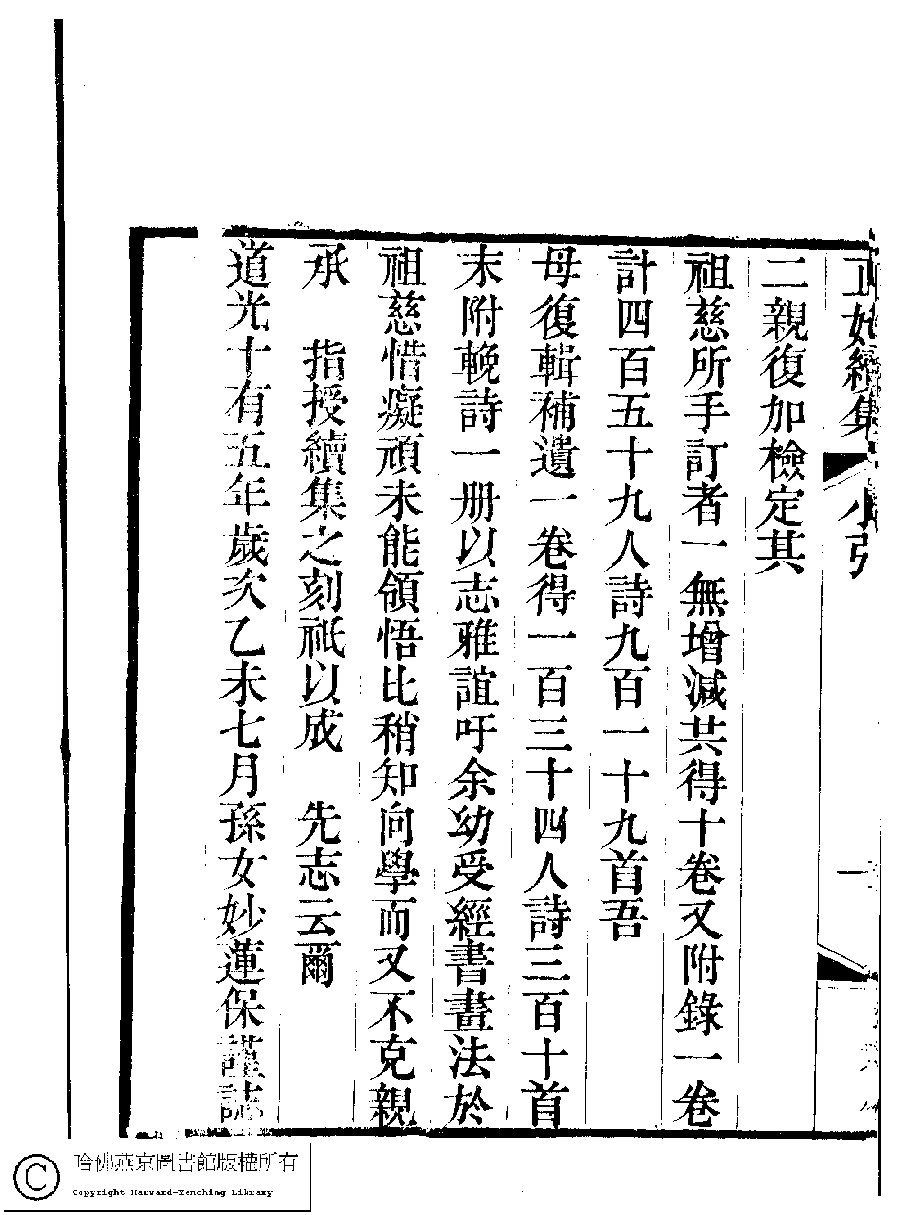 正始續集 小引
二親復加檢定其
祖慈所手訂者一無增減共得十卷又附錄一卷
計四百五十九人詩九百一十九首吾
母復輯補遺一卷得一百三十四人詩三百十首
末附輓詩一册以志雅誼吁余幼受經書畫法於
祖慈惜癡頑未能領悟比稍知向學而又不克親
承 指授續集之刻祇以成 先志云爾
道光十有五年歲次乙未七月孫女妙蓮保謹誌
哈佛燕京圖書館版權所有
Copyright Harvard-Yenching Library